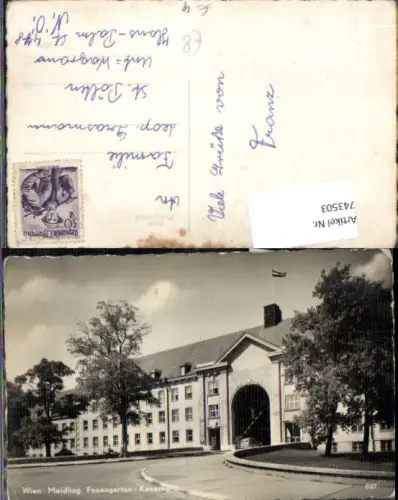 An
Familie
Leop. Grasmann
St. Pölten
Unt=Wagram
Hans-Palm St. 448
N.Ö.
Viele Grüße von
Franz
Artikel Nr.
743503
Republik Österreich
30
g
Wien Meidling Fasangarten-Kaserne